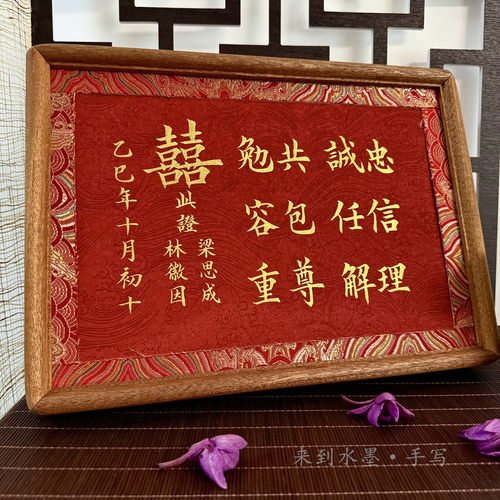 忠誠 共勉
信任 包容
理解 尊重
囍
此證
梁思成
林徽因
乙巳年十月初十
来到水墨·手写